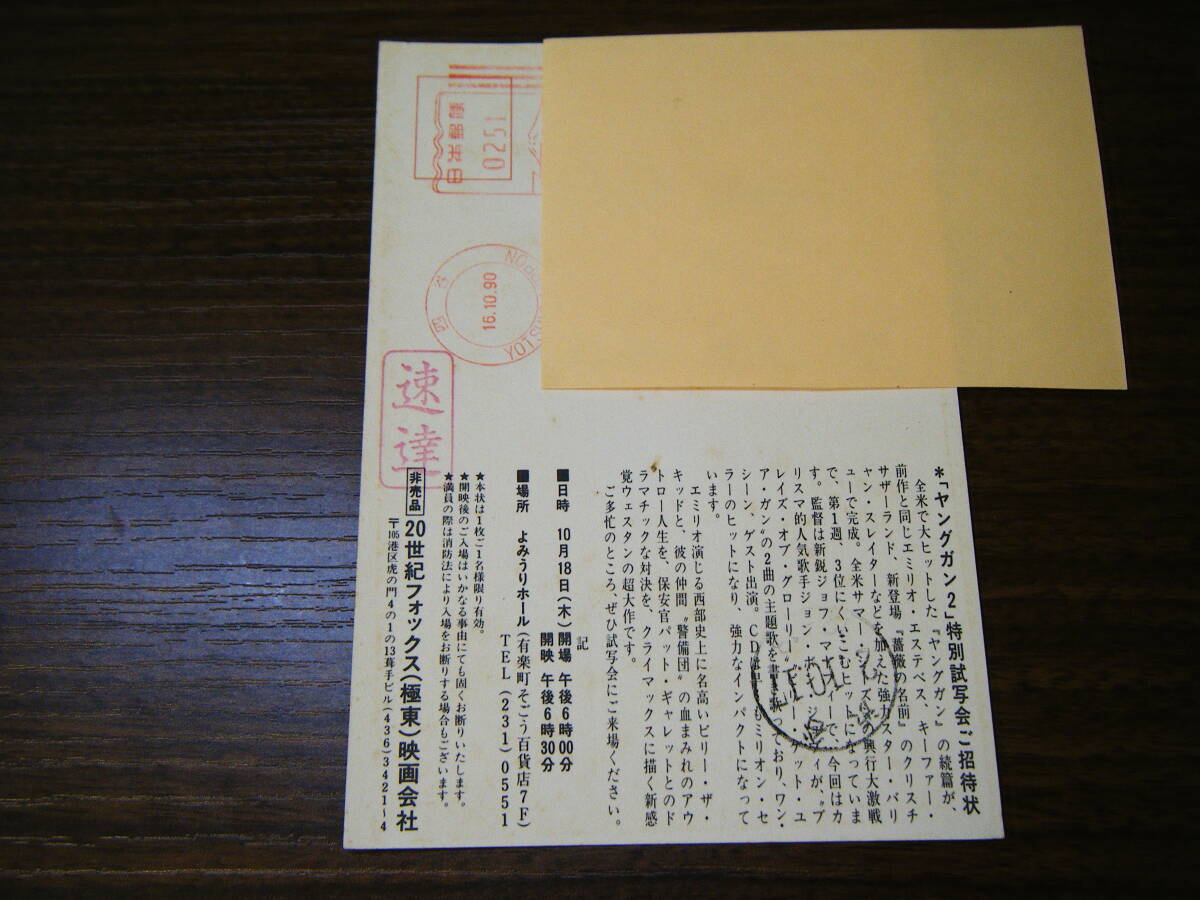 *「ヤングガン2」特別試写会ご招待状
全米で大ヒットした『ヤングガン』の続篇が、
前作と同じエミリオ・エステベス、キーファー・
サザーランド、新登場『薔薇の名前』のクリスチ
ャン・スレイターなどを加えた強力スター・バリ
ューで完成。全米サマー・シーズンの興行大激戦
で、第1週、3位にくいこむヒットになっていま
す。監督は新鋭ジョフ・マーフィーで、今回はカ
リスマ的人気歌手ジョン・ボン・ジョヴィが、〝ブ
レイズ・オブ・グローリー〟〝ビリー・ゲット・ユ
ア・ガン〟の2曲の主題歌を書き歌っており、ワン・
シーン、ゲスト出演。CDは早くもミリオン・セ
ラーのヒットになり、強力なインパクトになって
います。
エミリオ演じる西部史上に名高いビリー・ザ・
キッドと、彼の仲間〝警備団〟の血まみれのアウ
トロー人生を、保安官パット・ギャレットとのド
ラマチックな対決を、クライマックスに描く新感
覚ウェスタンの超大作です。
ご多忙のところ、ぜひ試写会にご来場ください。
記
■日時 10月18日(木)開場 午後6時00分
開映 午後6時30分
■場所 よみうりホール(有楽町そごう百貨店7F)
TEL(231)0551
★本状は1枚ご1名様限り有効。
★開映後のご入場はいかなる事由にても固くお断りいたします。
★満員の際は消防法により入場をお断りする場合もございます。
非売品 20世紀フォックス(極東)映画会社
〒105港区虎の門4の1の13葺手ビル(436)3421~4
速達
0251
16.10.90